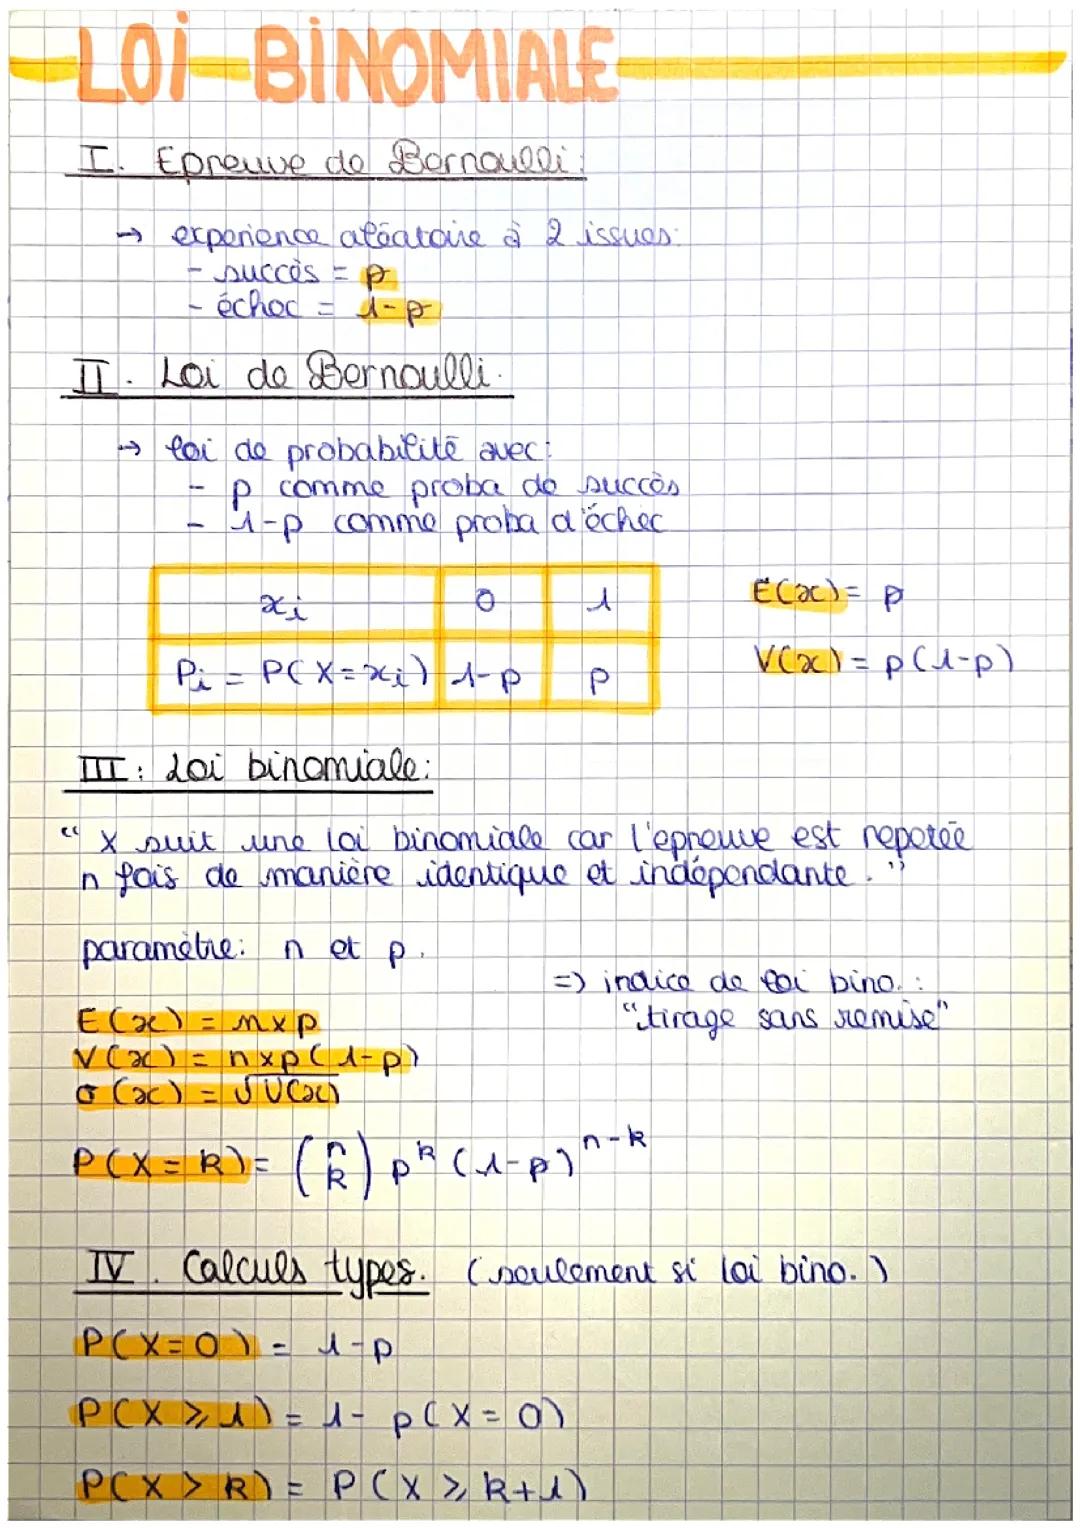 LOI BINOMIALE
I. Epreuve de Bernoulli:
→ experience aléatoire à 2 issues:
- succès = p
- échec = 1-p
II. Loi de Bernoulli.
→ loi de probabilité avec:
- p comme proba de succès
- 1-p comme proba d'échec
xi 0 1
Pi = P(X=xi) 1-p p
E(x) = p
V(x) = p(1-p)
III: Loi binomiale:
"X suit une loi binomiale car l'epreuve est repetée
n fois de manière identique et indépendante."
paramètre: n et p.
=> indice de loi bino.:
"tirage sans remise"
E(x) = n×p
V(x) = n×p(1-p)
σ(x) = √V(x)
P(X=k) = (n k) p^k (1-p)^n-k
IV. Calculs types. (seulement si loi bino.)
P(X=0) = 1-p
P(X⩾1) = 1- p(X=0)
P(X>k) = P(X⩾k+1)